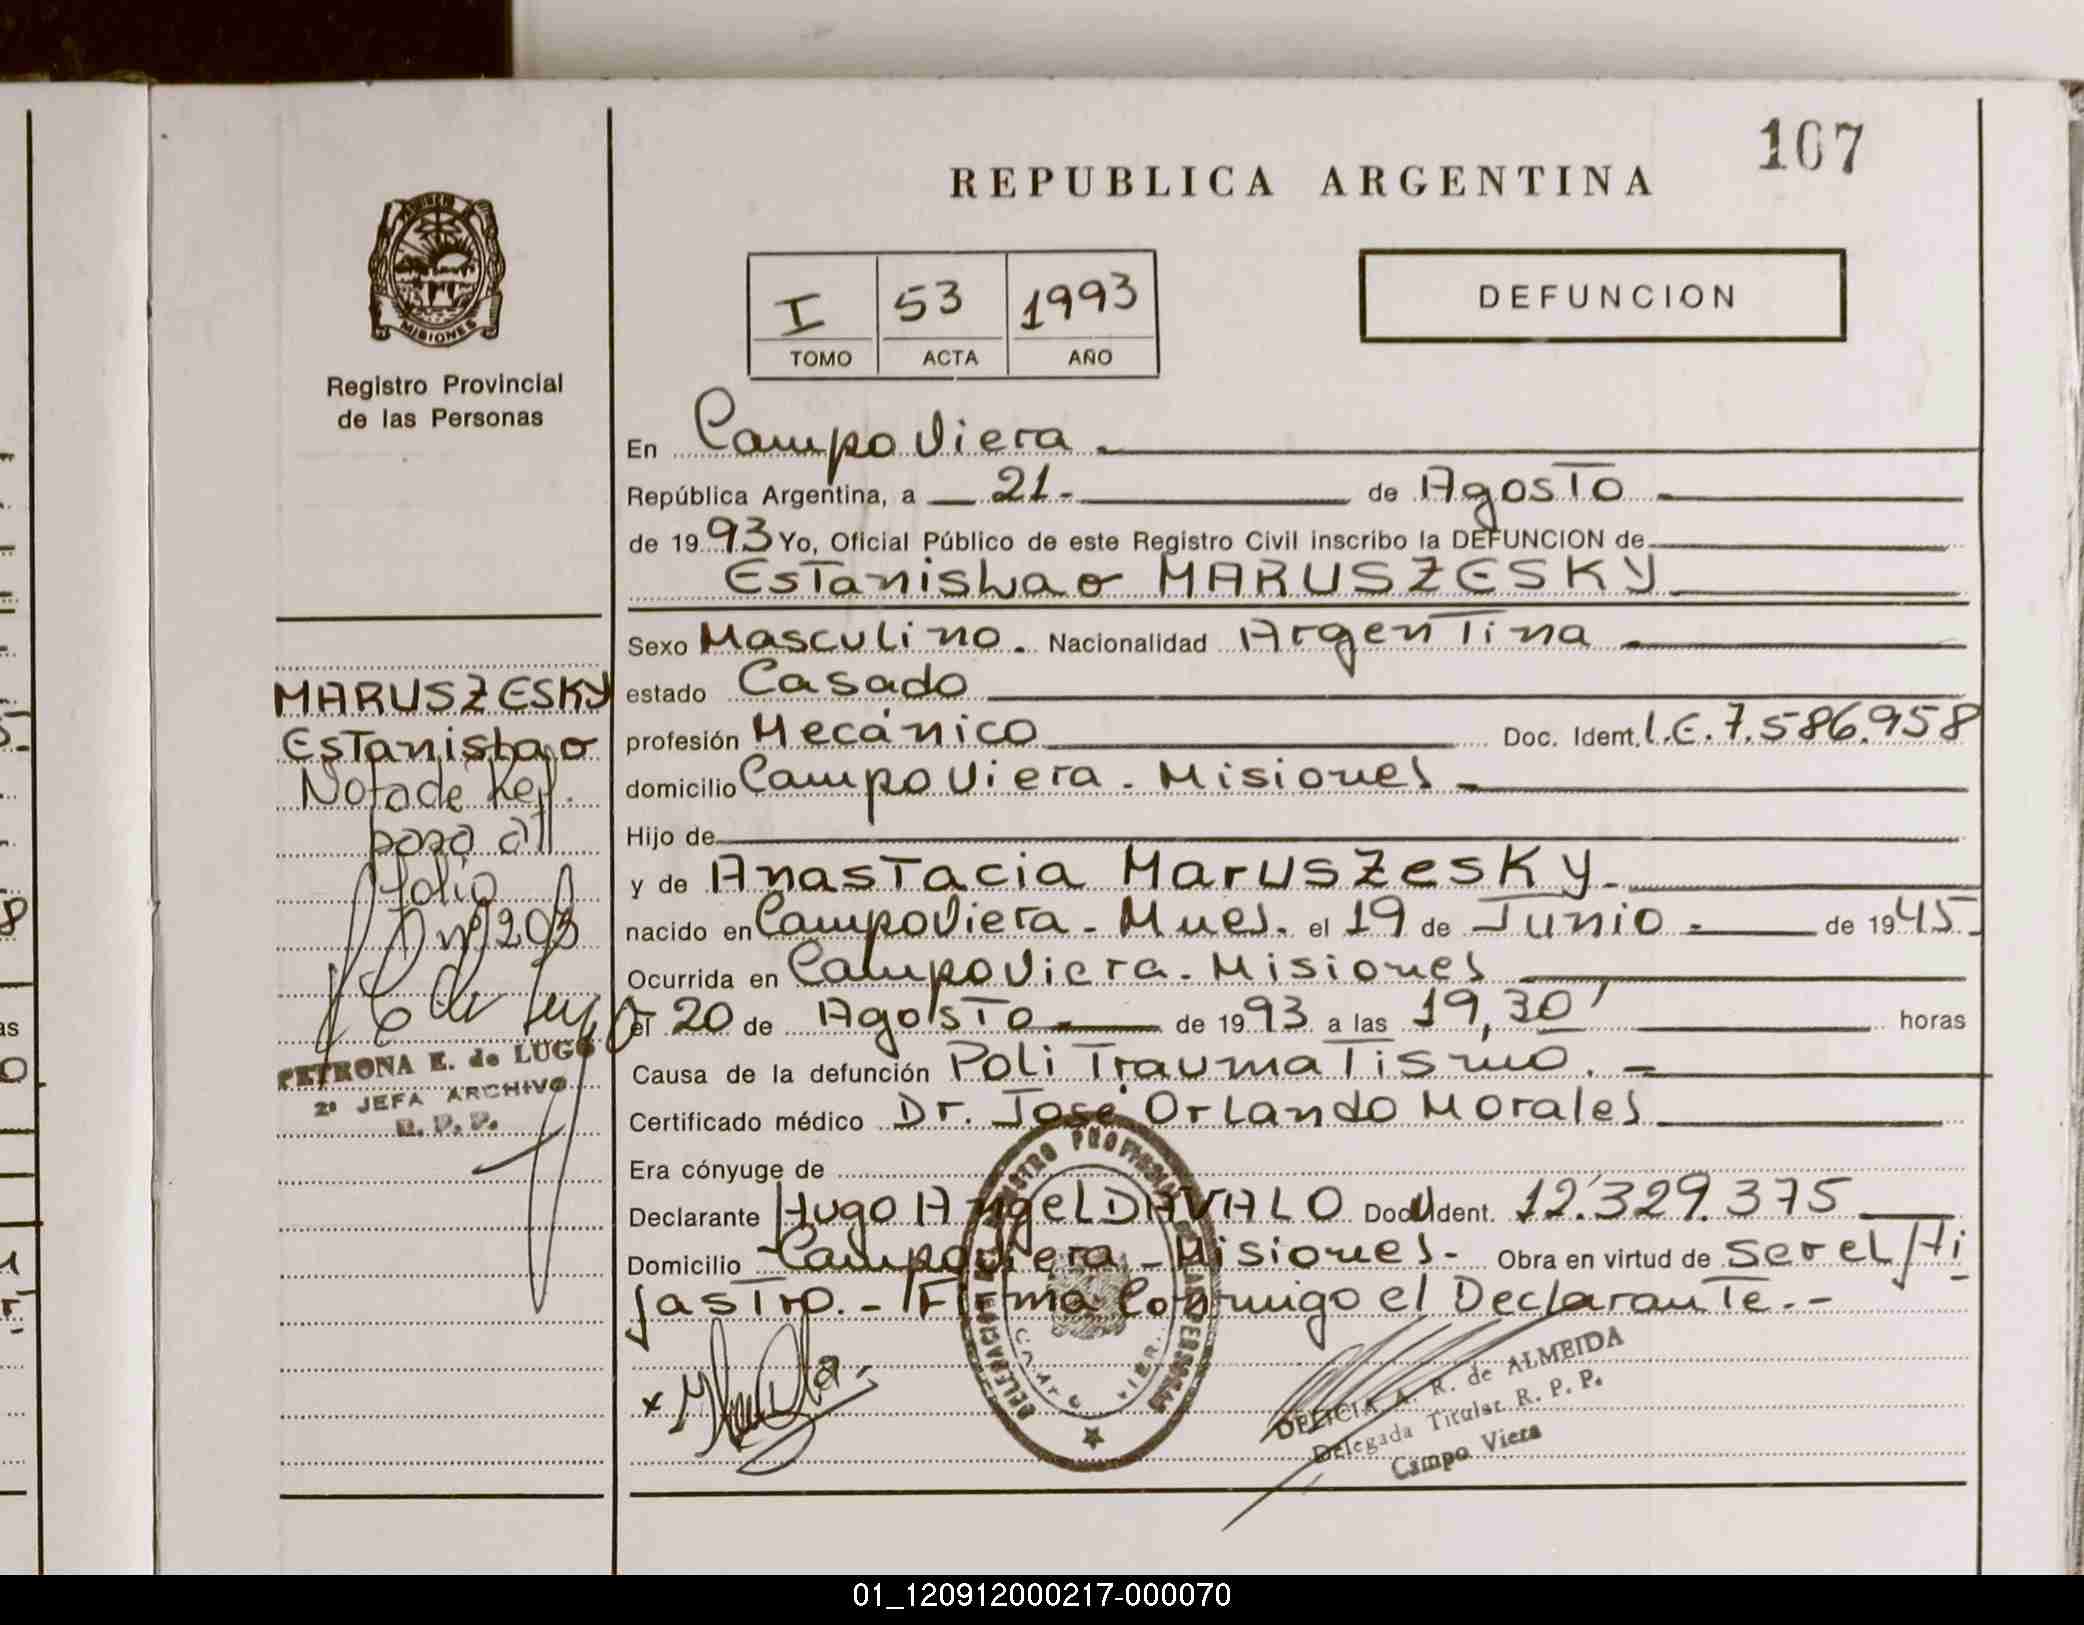 107
REPUBLICA ARGENTINA
MISIONES
Registro Provincial
de las Personas
I 53 1993
TOMO ACTA AÑO
DEFUNCION
En Campo Viera.
República Argentina, a 21- de Agosto
de 1993 Yo, Oficial Público de este Registro Civil inscribo la DEFUNCION de
Estanislao MARUSZESKY
Sexo Masculino. Nacionalidad Argentina
estado Casado
profesión Mecánico Doc. Ident. L.E. 7.586.958
domicilio Campo Viera - Misiones
Hijo de
y de Anastacia Maruszesky
nacido en Campo Viera - Mnes. el 19 de Junio de 1945
Ocurrida en Campo Viera - Misiones
el 20 de Agosto de 1993 a las 19,30' horas
Causa de la defunción PoliTraumatismo.
Certificado médico Dr. José Orlando Morales
Era cónyuge de
Declarante Hugo Angel DAVALO Doc. Ident. 12.329.375
Domicilio Campo Viera - Misiones- Obra en virtud de ser el Hi
jastro.- Firma Conmigo el Declarante.-
MARUSZESKY
Estanislao
Nota de Ref.
pasa al
folio
nº 203
PETRONA E. de LUGO
2ª JEFA ARCHIVO
R. P. P.
DELICIA A. R. de ALMEIDA
Delegada Titular R. P. P.
Campo Viera
01_120912000217-000070